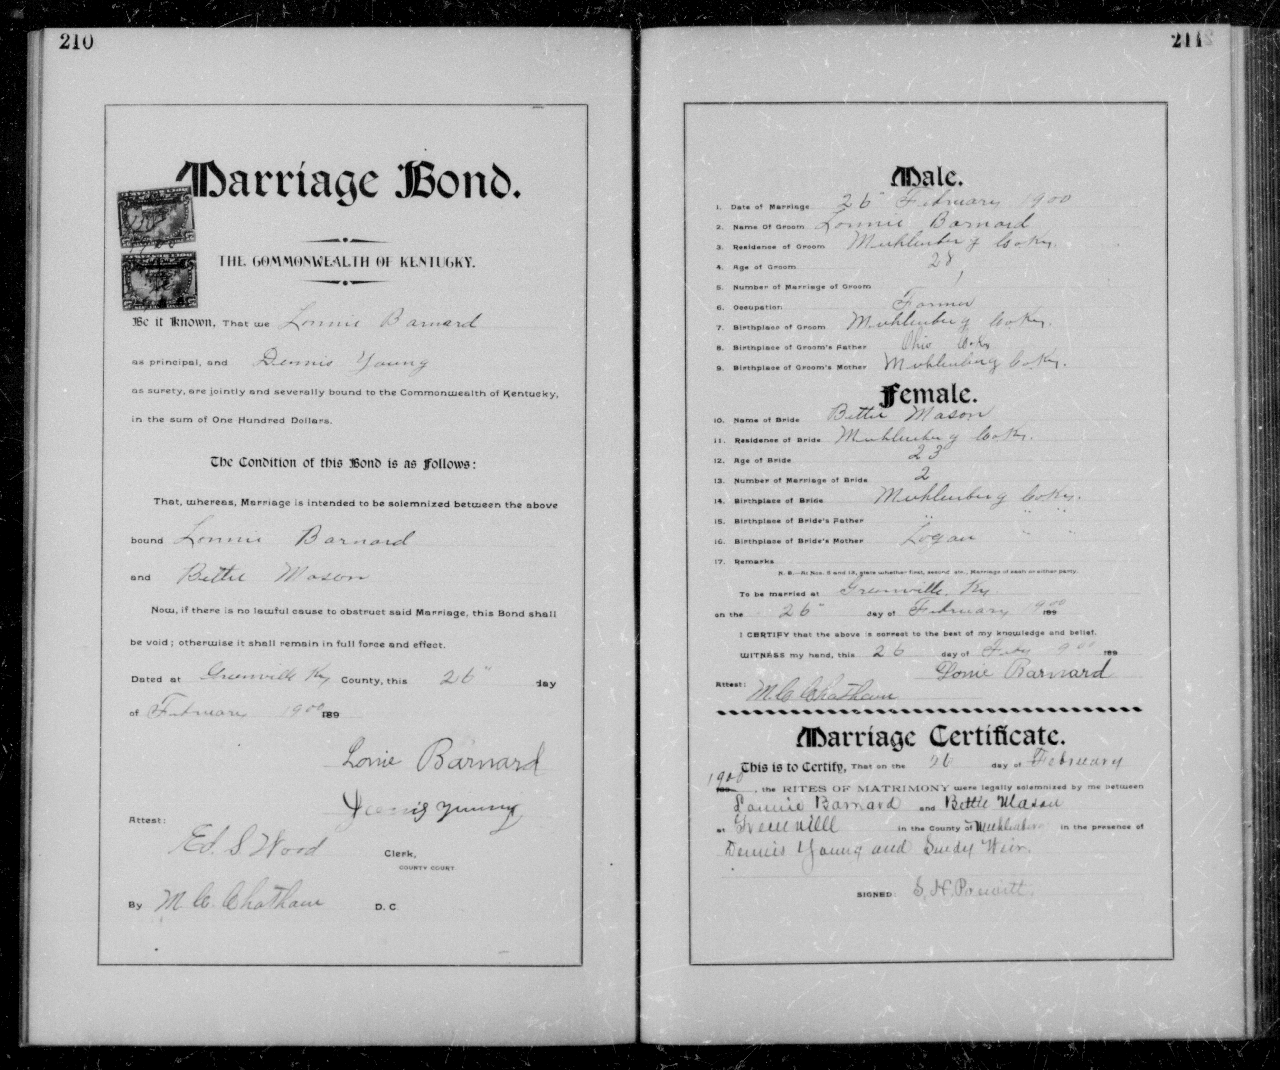 210
Marriage Bond.
THE COMMONWEALTH OF KENTUCKY.
Be it Known, That we Lonnie Barnard
as principal, and Dennis Young
as surety, are jointly and severally bound to the Commonwealth of Kentucky,
in the sum of One Hundred Dollars.
The Condition of this Bond is as Follows:
That, whereas, Marriage is intended to be solemnized between the above
bound Lonnie Barnard
and Bettie Mason
Now, if there is no lawful cause to obstruct said Marriage, this Bond shall
be void; otherwise it shall remain in full force and effect.
Dated at Greenville Ky County, this 26" day
of February 1900 189
Lonie Barnard
Dennis Young
Attest:
Ed. S Wood Clerk,
COUNTY COURT
By M. C. Chatham D. C.
211
Male.
1. Date of Marriage 26" February 1900
2. Name Of Groom Lonnie Barnard
3. Residence of Groom Muhlenberg Co Ky.
4. Age of Groom 28
5. Number of Marriage of Groom 1
6. Occupation Farmer
7. Birthplace of Groom Muhlenberg Co Ky.
8. Birthplace of Groom's Father Ohio Co Ky
9. Birthplace of Groom's Mother Muhlenberg Co Ky.
Female.
10. Name of Bride Bettie Mason
11. Residence of Bride Muhlenberg Co Ky.
12. Age of Bride 23
13. Number of Marriage of Bride 2
14. Birthplace of Bride Muhlenberg Co Ky.
15. Birthplace of Bride's Father " " "
16. Birthplace of Bride's Mother Logan " "
17. Remarks
N. B.—At Nos. 5 and 13, state whether first, second, etc., Marriage of each or either party.
To be married at Greenville, Ky
on the 26" day of February 1900 189
I CERTIFY that the above is correct to the best of my knowledge and belief.
WITNESS my hand, this 26 day of Feby 900 189
Lonie Barnard
Attest: M. C. Chatham
Marriage Certificate.
This is to Certify, That on the 26 day of February
1900 189 , the RITES OF MATRIMONY were legally solemnized by me between
Lonnie Barnard and Bettie Mason
at Greenvilll in the County of Muhlenberg in the presence of
Dennis Young and Weir.
SIGNED: